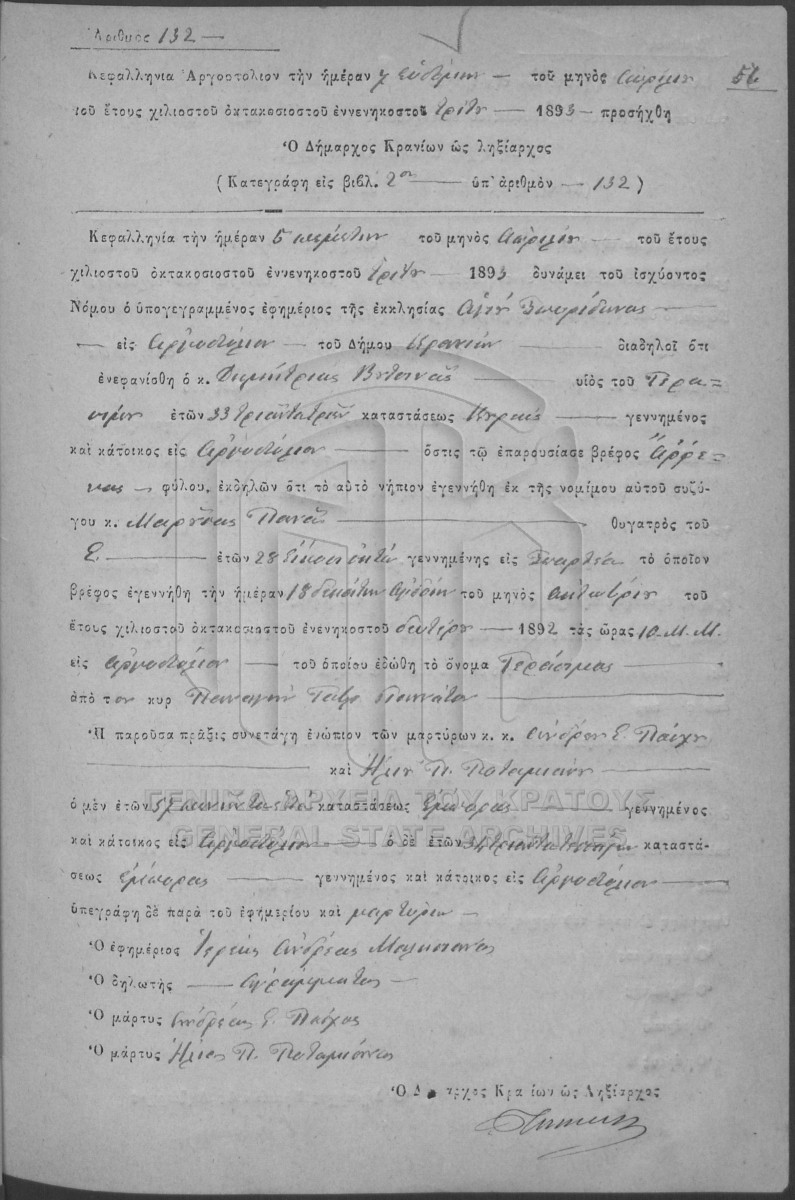 Ἀριθμὸς 132 —
56
Κεφαλληνία Ἀργοστόλιον τὴν ἡμέραν 7 ἑβδόμην — τοῦ μηνὸς Ἀπριλίου
τοῦ ἔτους χιλιοστοῦ ὀκτακοσιοστοῦ ἐννενηκοστοῦ τρίτου — 1893 — προσήχθη
Ὁ Δήμαρχος Κρανίων ὡς ληξίαρχος
(Κατεγράφη εἰς βιβλ. 2ον — ὑπ' ἀριθμὸν — 132)
Κεφαλληνία τὴν ἡμέραν 5 πέμπτην τοῦ μηνὸς Ἀπριλίου — τοῦ ἔτους
χιλιοστοῦ ὀκτακοσιοστοῦ ἐννενηκοστοῦ τρίτου — 1893 δυνάμει τοῦ ἰσχύοντος
Νόμου ὁ ὑπογεγραμμένος ἐφημέριος τῆς ἐκκλησίας Ἁγίου Σπυρίδωνος —
— εἰς Ἀργοστόλιον — τοῦ Δήμου Κρανίων — διαδηλοῖ ὅτι
ἐνεφανίσθη ὁ κ. Δημήτριος — υἱὸς τοῦ Γερα-
σίμου ἐτῶν 33 τριάντα τριῶν καταστάσεως — γεννημένος
καὶ κάτοικος εἰς Ἀργοστόλιον — ὅστις τῷ ἐπαρουσίασε βρέφος Ἄρρε-
νος — φύλου, ἐκδηλῶν ὅτι τὸ αὐτὸ νήπιον ἐγεννήθη ἐκ τῆς νομίμου αὐτοῦ συζύ-
γου κ. Μαρούσας Πανᾶ — θυγατρὸς τοῦ
Σ. — ἐτῶν 28 εἴκοσι ὀκτὼ γεννημένης εἰς Σπαρτιά τὸ ὁποῖον
βρέφος ἐγεννήθη τὴν ἡμέραν 18 δεκάτην ὀγδόην τοῦ μηνὸς Ὀκτωβρίου τοῦ
ἔτους χιλιοστοῦ ὀκτακοσιοστοῦ ἐνενηκοστοῦ δευτέρου — 1892 τὰς ὥρας 10 Μ. Μ.
εἰς Ἀργοστόλιον — τοῦ ὁποίου ἐδώθη τὸ ὄνομα Γεράσιμος —
ἀπὸ τον κυρ Παναγῆν —
Ἡ παροῦσα πρᾶξις συνετάγη ἐνώπιον τῶν μαρτύρων κ. κ. Ἀνδρέου Σ. Πάχου
— καὶ Ἠλίου Π. Ποταμιάνου —
ὁ μὲν ἐτῶν 57 πενῆντα ἑπτὰ καταστάσεως Ἔμπορος — γεννημένος
καὶ κάτοικος εἰς Ἀργοστόλιον — ὁ δὲ ἐτῶν 34 τριάντα τεσσάρων καταστά-
σεως Ἔμπορος — γεννημένος καὶ κάτοικος εἰς Ἀργοστόλιον —
ὑπεγράφη δὲ παρὰ τοῦ ἐφημερίου καὶ μαρτύρων —
Ὁ ἐφημέριος Ἱερεὺς Ἀνδρέας
Ὁ δηλωτὴς — ἀγράμματος —
Ὁ μάρτυς Ἀνδρέας Σ. Πάχος
Ὁ μάρτυς Ἠλίας Π. Ποταμιάνος
Ὁ Δήμαρχος Κρανίων ὡς Ληξίαρχος
ΓΕΝΙΚΑ ΑΡΧΕΙΑ ΤΟΥ ΚΡΑΤΟΥΣ
GENERAL STATE ARCHIVES